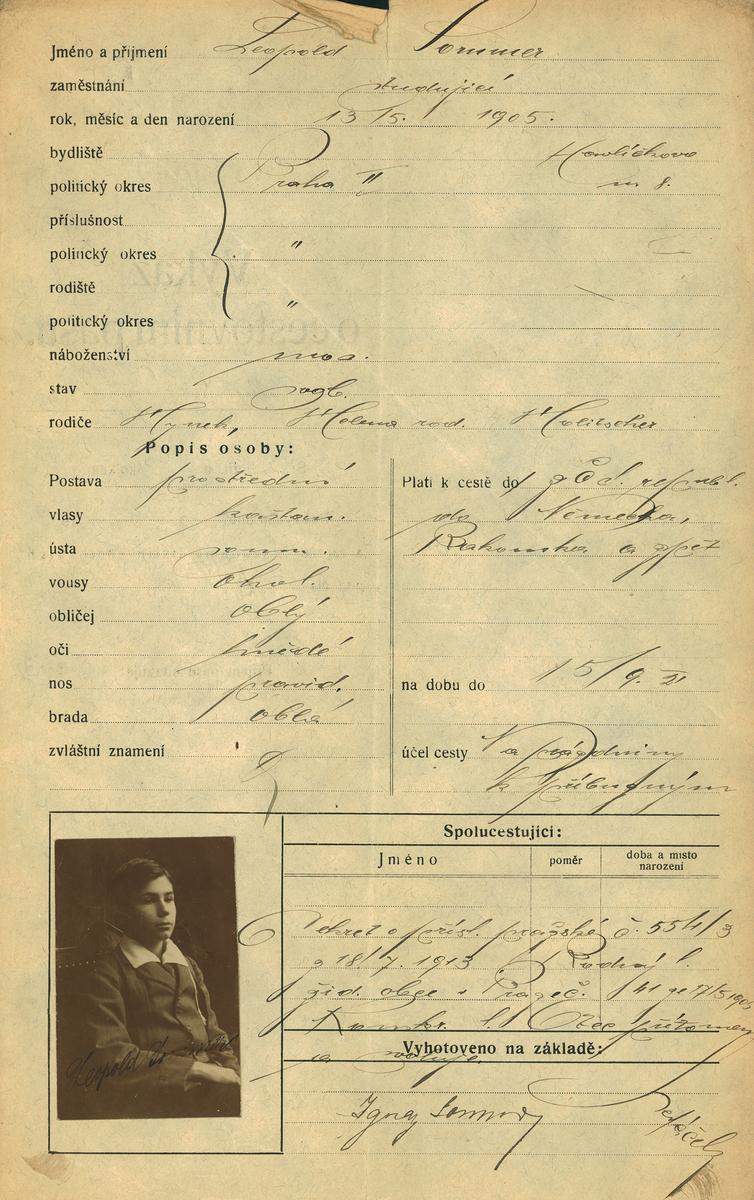 Jméno a přijmení Leopold Sommer
zaměstnání studující
rok, měsíc a den narození 13/5. 1905.
bydliště Havlíčkovo
politický okres Praha II n. 8.
příslušnost
politický okres "
rodiště
politický okres "
náboženství mos.
stav svob.
rodiče Hynek, Helena rod. Holitscher
Popis osoby:
Postava prostřední
vlasy kaštan.
ústa soum.
vousy ohol.
obličej oblý
oči hnědé
nos pravid.
brada oblá
zvláštní znamení
Platí k cestě do Č S. republ.
do Německa,
Rakouska a zpět
na dobu do 15/9. 21
účel cesty Na prázdniny
k příbuzným
Spolucestující:
Jméno poměr doba a místo narození
Dekret o přísl. pražské č. 5511/3
z 18/7. 1913. Rodný l.
žid. obce v Praze č. 41 ze 17/5 1905
l. Otec přítomen
Vyhotoveno na základě:
a svoluje.
Leopold Sommer
Ignaz Sommer